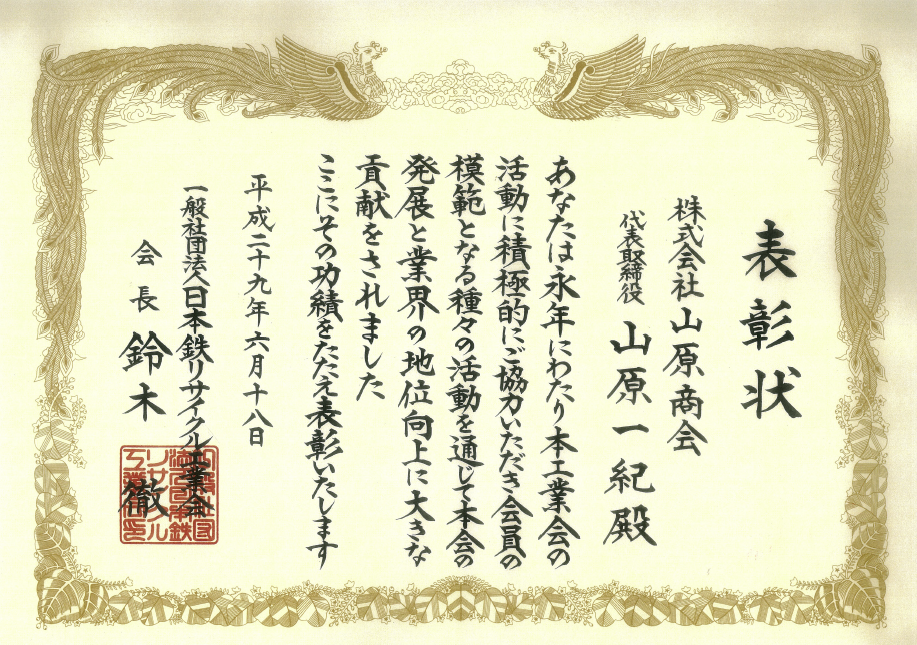 表彰状
株式会社山原商会
代表取締役 山原一紀殿
あなたは永年にわたり本工業会の
活動に積極的にご協力いただき会員の
模範となる種々の活動を通じて本会の
発展と業界の地位向上に大きな
貢献をされました
ここにその功績をたたえ表彰いたします
平成二十九年六月十八日
一般社団法人日本鉄リサイクル工業会
会長 鈴木 徹